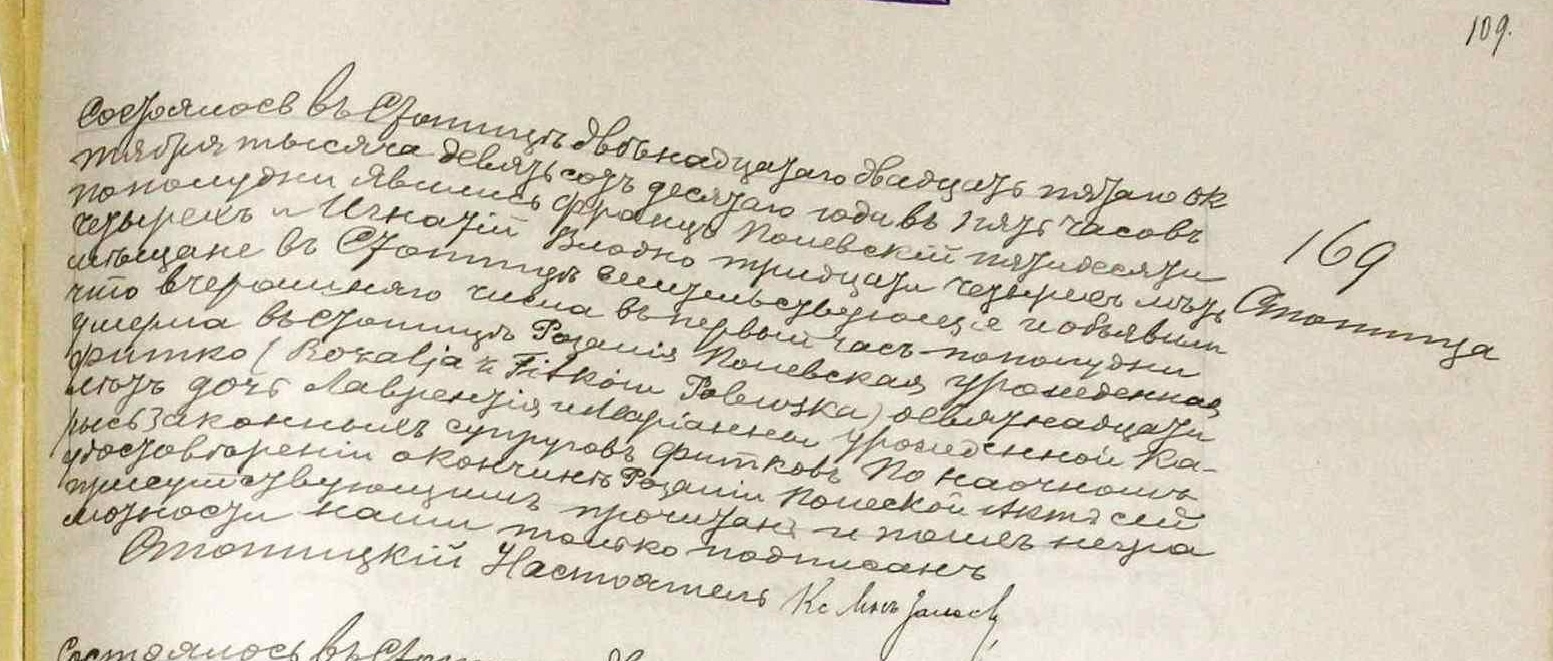 109.
Состоялось въ Стопницѣ двѣнадцатаго двадцать пятаго ок
тября тысяча девятьсотъ десятаго года въ пять часовъ
пополудни Явились Францъ Полевскій пятидесяти
четырехъ и Игнатій Влодно тридцати четырехъ лѣтъ
мѣщане въ Стопницѣ жительствующіе и объявили
что вчерашняго числа въ первый часъ пополудни
умерла въ Стопницѣ Розалія Полевская урожденная
Фитко (Rozalja z Fitków Polewska) девятнадцати
лѣтъ дочь Лаврентія и Маріанны урожденной Ка-
рысь законныхъ супруговъ Фитковъ По наочномъ
удостовѣреніи о кончинѣ Розаліи Полеской Актъ сей
присутствующимъ прочитанъ и по ихъ негра
мотности нами только подписанъ
Стопницкій Настоятель Кс
169
Стопница
Состоялось въ